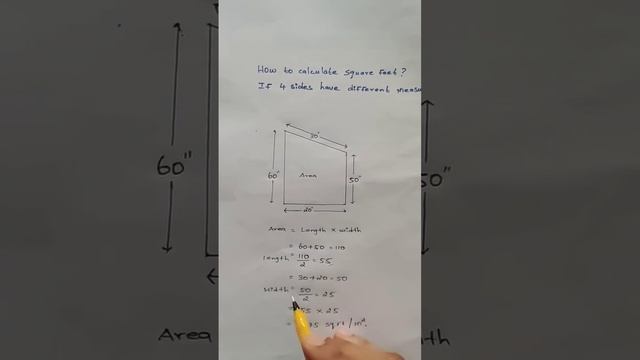 How to calculate square feet?
If 4 sides have different measu
30"
60"
Area
50"
20"
Area = Length × width
= 60+50 = 110
Length = 110/2 = 55
= 30+20 = 50
width = 50/2 = 25
55 × 25
sqrt/m².
60"
50"
Area